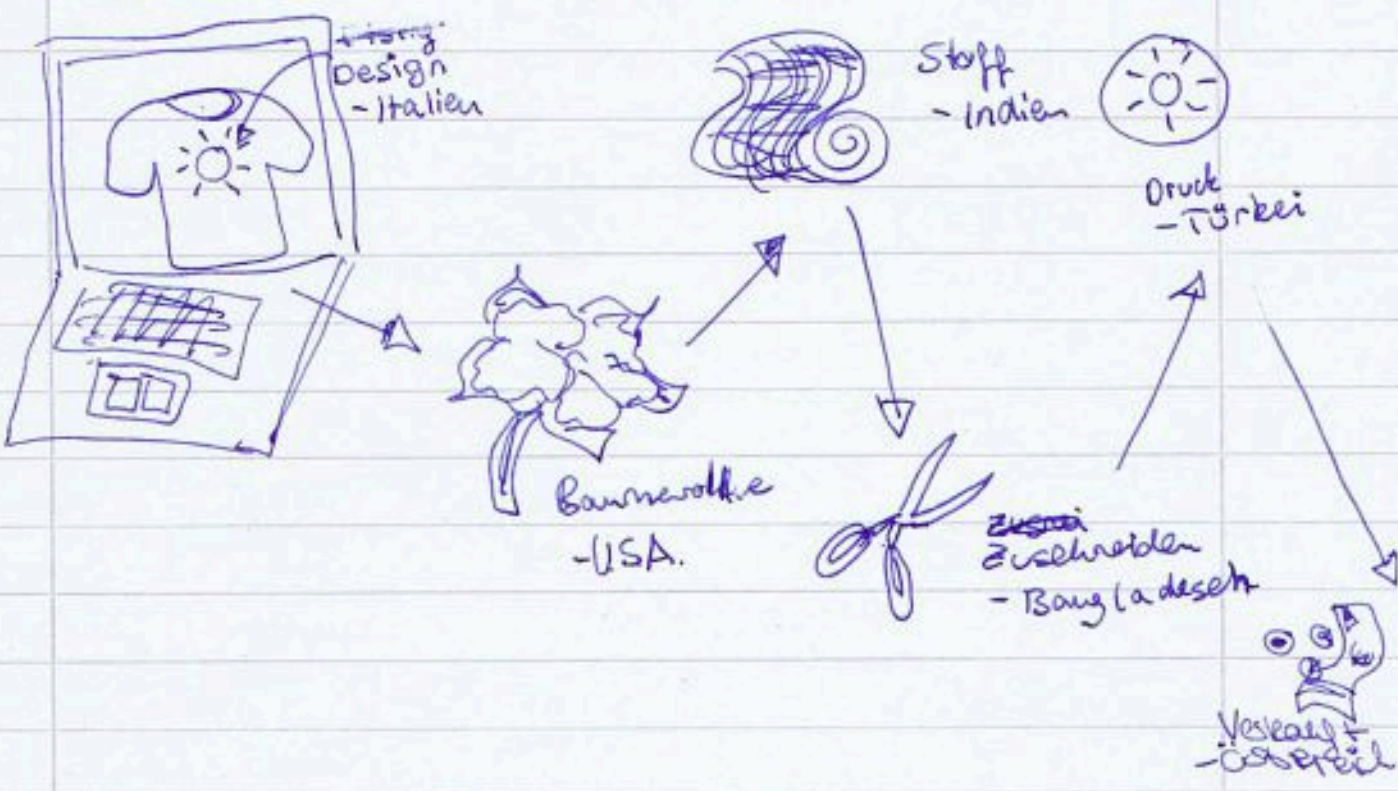 Design
- Italien
Baumwolle
- USA.
Stoff
- Indien
Zuschneiden
- Bangladesch
Druck
- Türkei
Verkauf
- Österreich